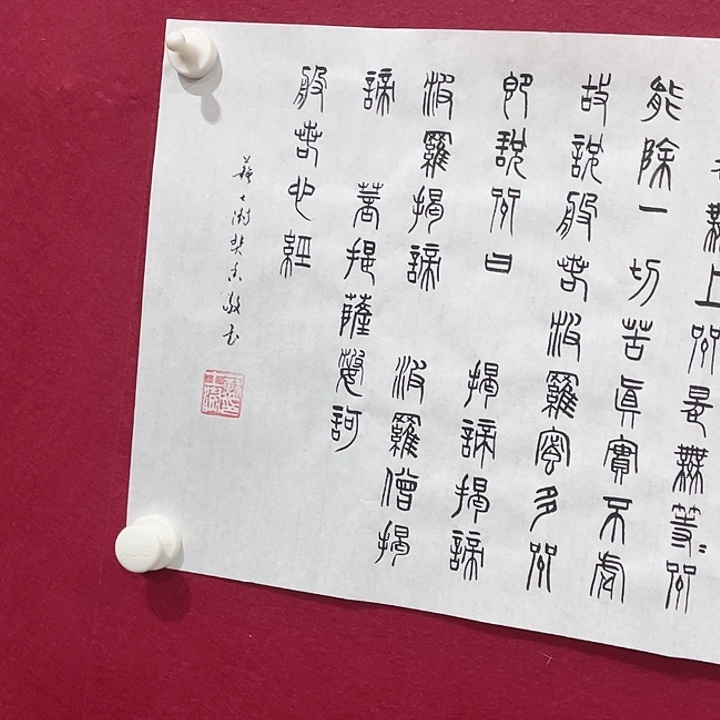 無上呪是無等〻呪
能除一切苦眞實不虛
故說般若波羅蜜多呪
卽說呪曰 揭諦揭諦
波羅揭諦 波羅僧揭
諦 菩提薩婆訶
般若心經